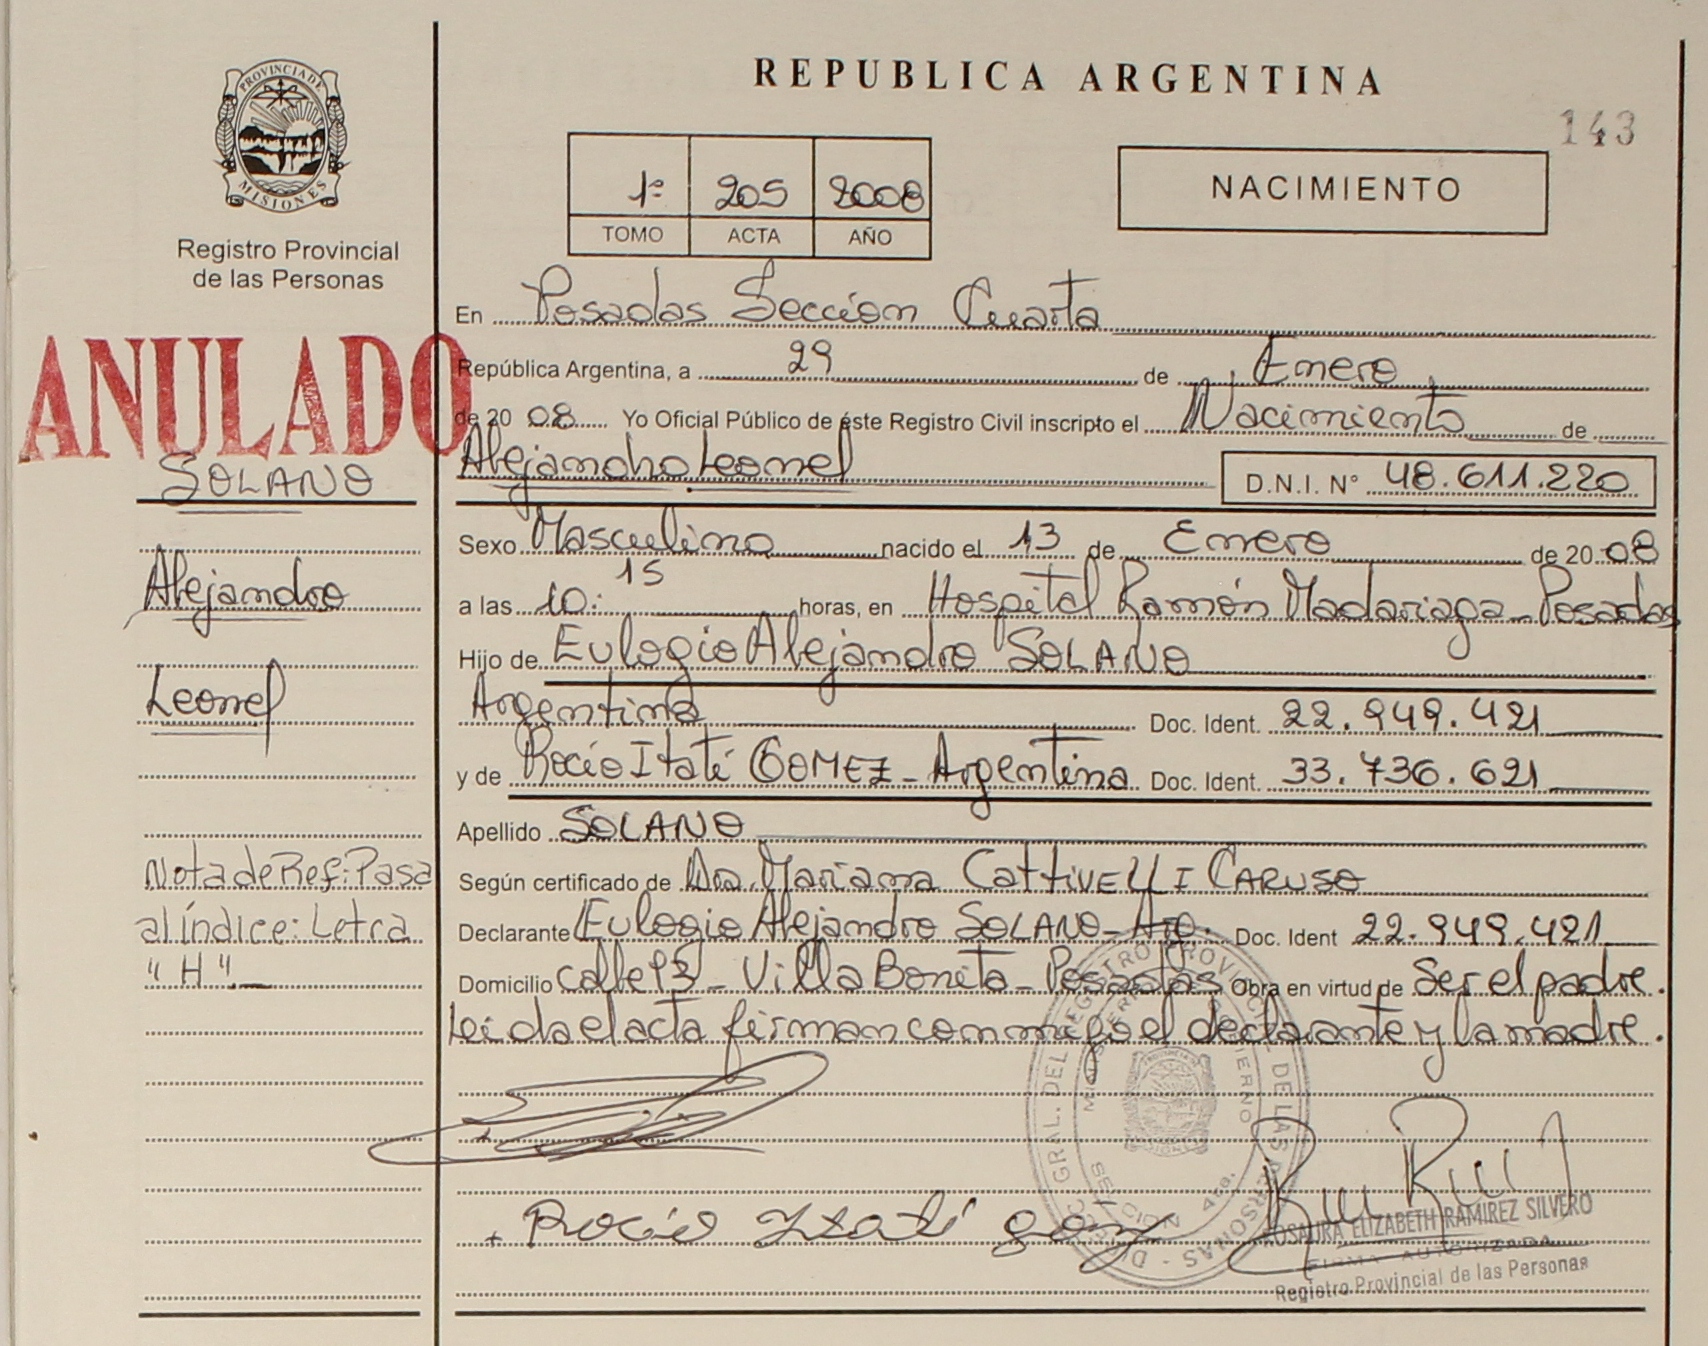 REPUBLICA ARGENTINA
143
PROVINCIA DE
MISIONES
Registro Provincial
de las Personas
1º 205 2008
TOMO ACTA AÑO
NACIMIENTO
ANULADO
SOLANO
Alejandro
Leonel
Nota de Ref: Pasa
al índice: Letra
"H".
En Posadas Seccion Cuarta
República Argentina, a 29 de Enero
de 20 08 Yo Oficial Público de éste Registro Civil inscripto el Nacimiento de
Alejandro Leonel D.N.I. N° 48.611.220
Sexo Masculino nacido el 13 de Enero de 20 08
a las 10:15 horas, en Hospital Ramón Madariaga - Posadas
Hijo de Eulogio Alejandro SOLANO
Argentina Doc. Ident. 22.949.421
y de Rocío Itatí GOMEZ - Argentina Doc. Ident. 33.736.621
Apellido SOLANO
Según certificado de Dra. Mariana CATTIVELLI CARUSO
Declarante Eulogio Alejandro SOLANO - Arg. Doc. Ident 22.949.421
Domicilio calle 93 - Villa Bonita - Posadas Obra en virtud de Ser el padre.
Leída el acta firman conmigo el declarante y la madre.
Rocio Itatí
ROSAURA ELIZABETH RAMIREZ SILVERO
FIRMA AUTORIZADA
Registro Provincial de las Personas